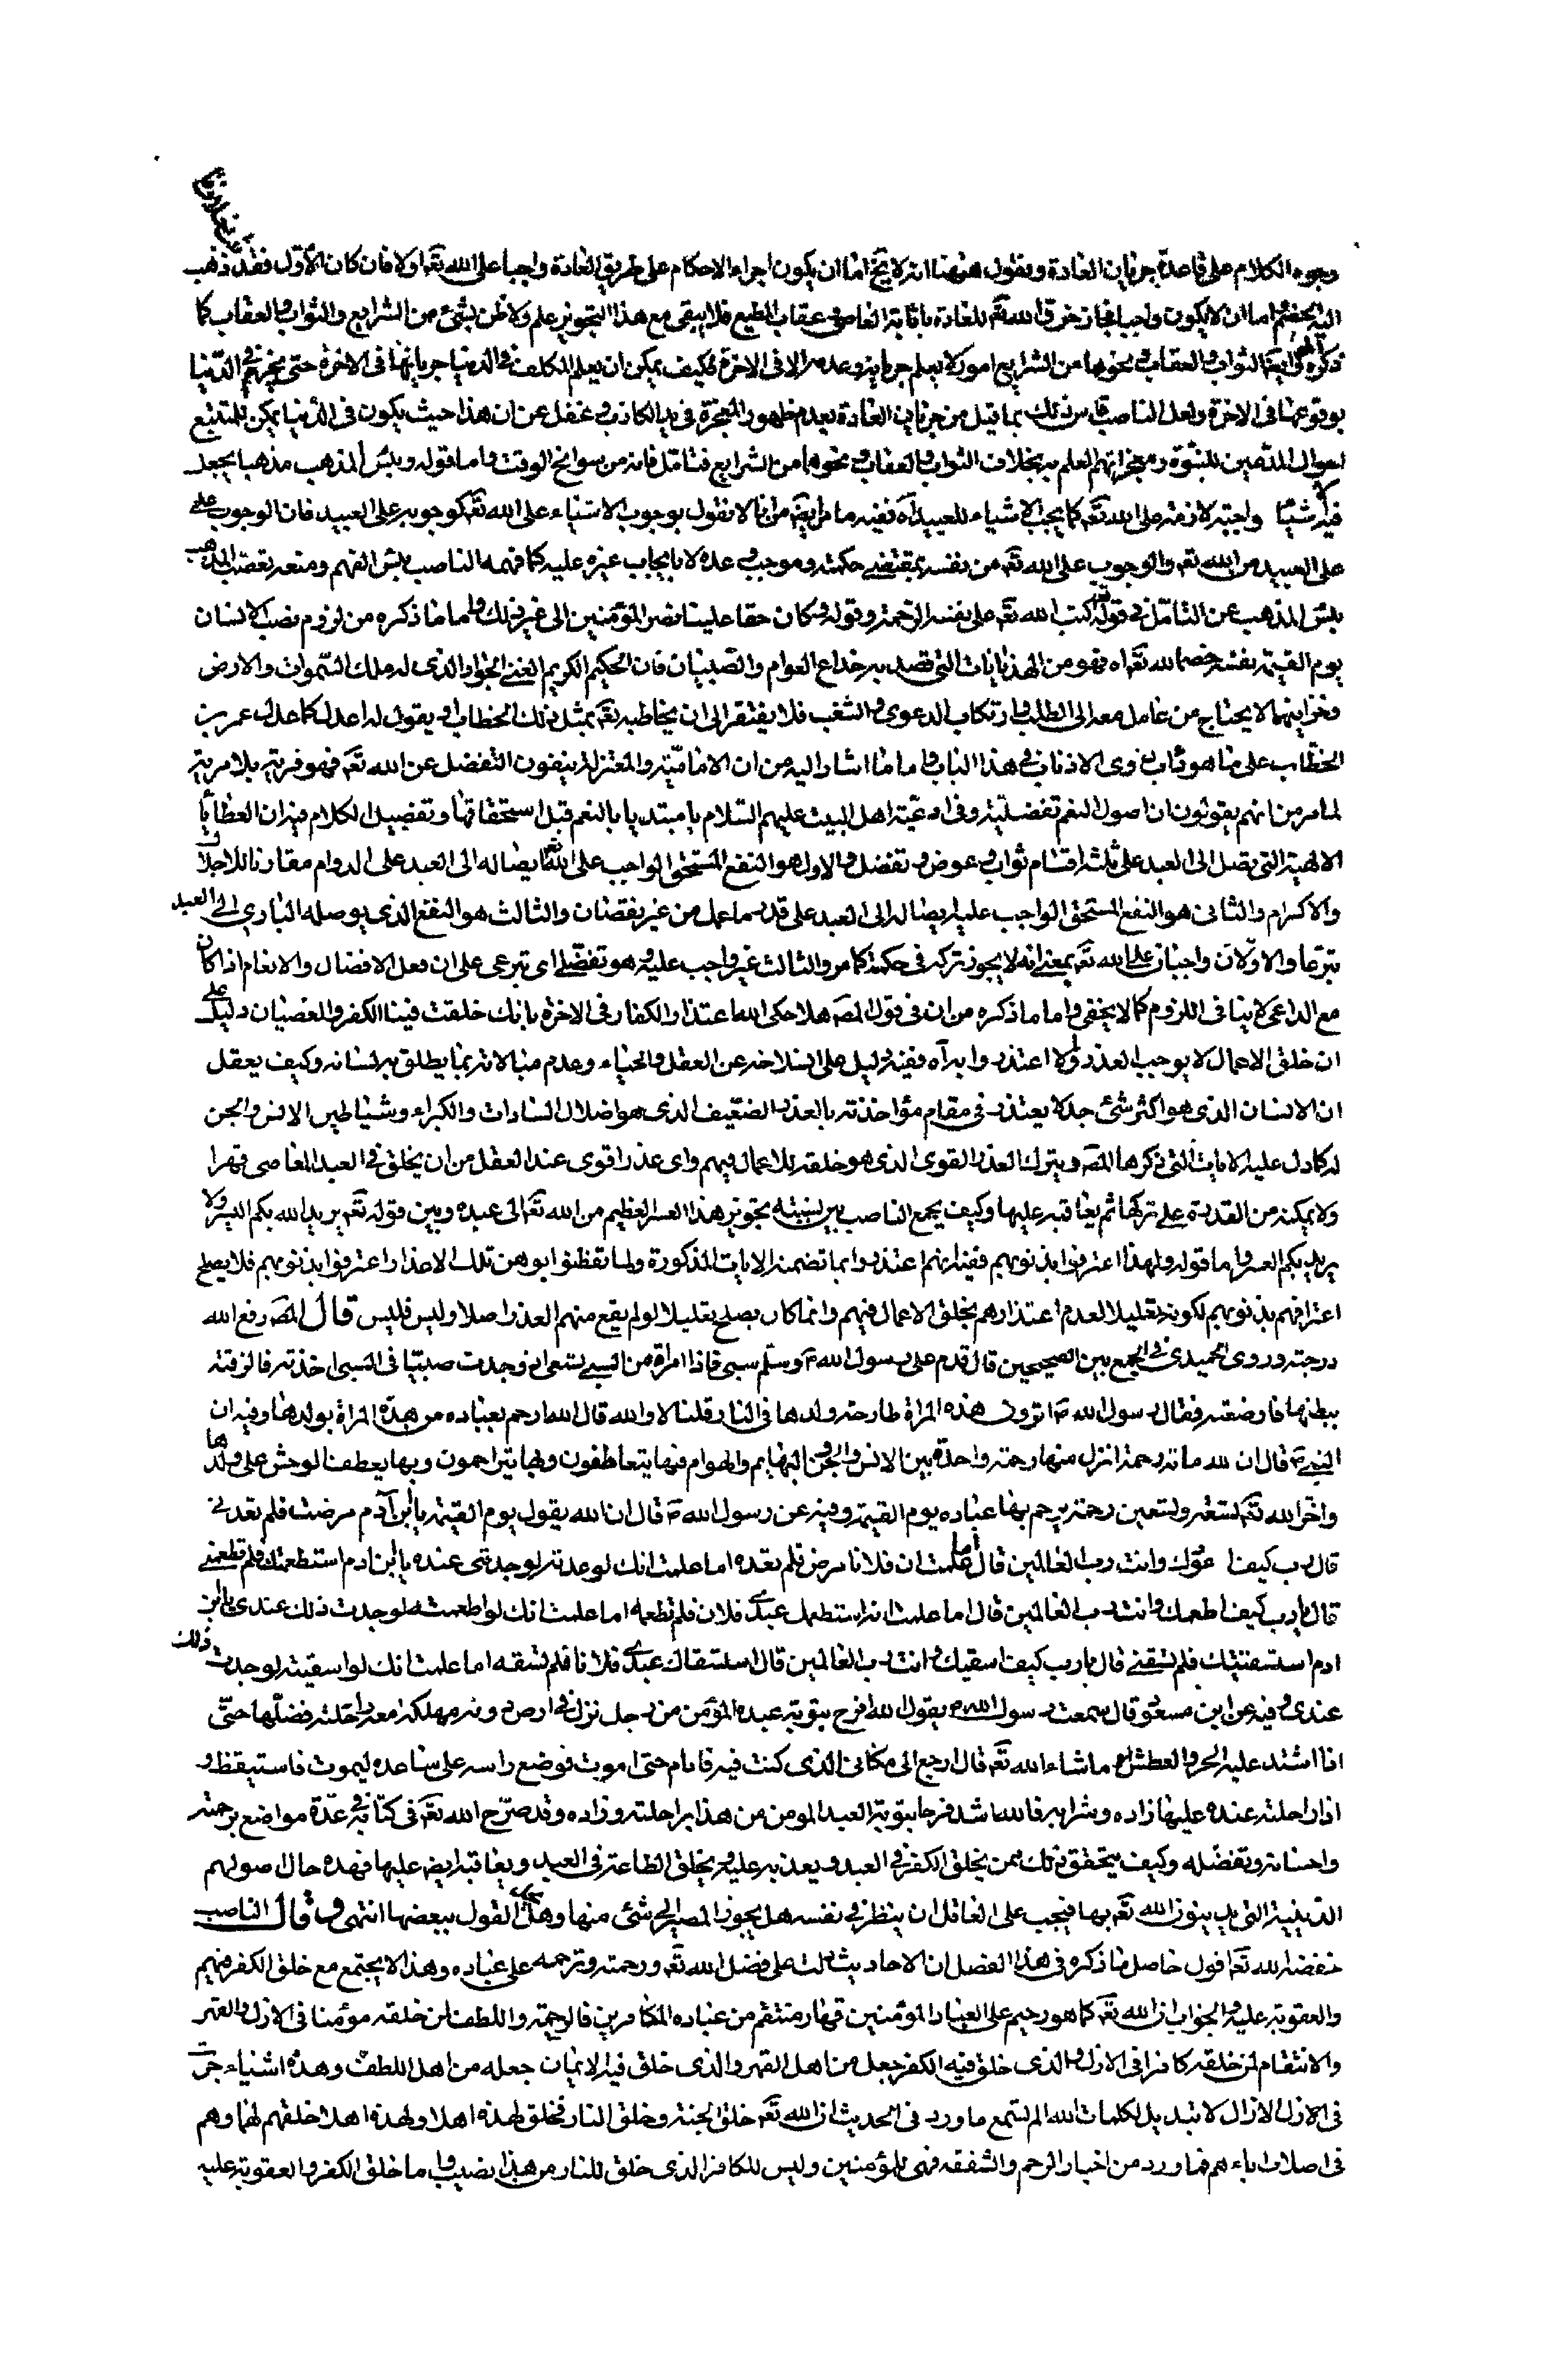 وجوه الكلام على قاعدة جريان العادة ونقول ههنا انه لا يخ اما ان يكون اجراء الاحكام على طريق العادة واجبا على الله تع اولا فان كان الأول فقد ذهب
اما ان لا يكون واجبا فجاز خرق الله تع للعادة باثابة العاصى وعقاب المطيع فلا يبقى مع هذا التجويز علم ولا ظن بشئ من الشرايع والثواب والعقاب كما
ذكره الثواب والعقاب ونحوها من الشرايع امور لا يعلم جريانه وعدمه الا فى الاخرة فكيف يمكن ان يعلم المكلف فى الدنيا جريانها فى الاخرة حتى فى الدنيا
بوقوعها فى الاخرة ولعل الناصب قاس ذلك بما قيل من جريان العادة بعدم ظهور المعجزة فى يد الكاذب وغفل عن ان هذا حيث يكون فى الدنيا يمكن للمتتبع
لاحوال المدعين للنبوة ومعجزاتهم العلم به بخلاف الثواب والعقاب ونحوها من الشرايع فتامل فانه من سوانح الوقت واما قوله وبئس المذهب مذهبا يجعل
فيه شيئا واجبة لازمة على الله تع كما يجب الاشياء للعبيد آه ففيه ما مر ايضا من انا لا نقول بوجوب الاشياء على الله تع كوجوبه على العبيد فان الوجوب
على العبيد من الله تع والوجوب على الله تع من نفسه بمقتضى حكمته وموجب وعده لا بايجاب غيره عليه كما فهمه الناصب بئس الفهم ومنعه تعصب المذهب
بئس المذهب عن التامل فى قوله كتب الله تع على نفسه الرحمة وقوله وكان حقا علينا نصر المؤمنين الى غير ذلك واما ما ذكره من لزوم نصب الانسان
يوم القيمة نفسه خصما لله تع اه فهو من الهذيانات التى قصد به خداع العوام والصبيان فان الحكيم الكريم الغنى الجواد الذى له ملك السموات والارض
وخزاينهما لا يحتاج من عامل معه الى الطلب وارتكاب الدعوى والشغب فلا يفتقر الى ان يخاطبه تع بمثل ذلك الخطاب ويقول له اعدل كما عدل عمر بن
الخطاب على ما هو داب ذوى الاذناب فى هذا الباب واما ما اشار اليه من ان الامامية والمعتزلة ينفون التفضل عن الله تع فهو فرية بلا مرية
لما مر من انهم يقولون ان اصول النعم تفضلية وفى ادعية اهل البيت عليهم السلام يا مبتديا بالنعم قبل استحقاقها وتفصيل الكلام فيه ان العطايا
الالهية التى يصل الى العبد على ثلثة اقسام ثواب وعوض وتفضل والاول هو النفع المستحق الواجب على الله تع ايصاله الى العبد على الدوام مقارنا للاجلال
والاكرام والثانى هو النفع المستحق الواجب عليه ايصاله الى العبد على قدر ما عمل من غير نقصان والثالث هو النفع الذى يوصله البارى الى العبد
تبرعا والاولان واجبان على الله تع بمعنى انه لا يجوز تركه فى حكمته كما مر والثالث غير واجب عليه وهو تفضلى اى تبرعى على ان فعل الافضال والانعام اذا كان
مع الداعى لا ينافى اللزوم كما لا يخفى واما ما ذكره من ان فى قول المص هلا حكى الله اعتذار الكفار فى الاخرة بانك خلقت فينا الكفر والعصيان دليل على
ان خلق الاعمال لا يوجب العذر ولا اعتذروا به آه ففيه دليل على انسلاخه عن العقل والحياء وعدم مبالاته بما يطلق به لسانه وكيف يعقل
ان الانسان الذى هو اكثر شئ جدلا يعتذر فى مقام مؤاخذته بالعذر الضعيف الذى هو اضلال السادات والكبراء وشياطين الانس والجن
له كما دل عليه الايات التى ذكرها المص ويترك العذر القوى الذى هو خلقه للاعمال فيهم واى عذر اقوى عند العقل من ان يخلق فى العبد المعاصى قهرا
ولا يمكنه من القدرة على تركها ثم يعاقبه عليها وكيف يجمع الناصب بين نسبته تجويز هذا العسر العظيم من الله تع الى عبده وبين قوله تع يريد الله بكم اليسر ولا
يريد بكم العسر واما قوله ولهذا اعترفوا بذنوبهم ففيه انهم اعتذروا بما تضمنه الايات المذكورة ولما تفطنوا بوهن تلك الاعذار اعترفوا بذنوبهم فلا يصلح
اعترافهم بذنوبهم لكونه تعليلا لعدم اعتذارهم بخلق الاعمال فيهم وانما كان يصلح تعليلا لو لم يقع منهم العذر اصلا وليس فليس قال المص رفع الله
درجته وروى الحميدى فى الجمع بين الصحيحين قال قدم على رسول الله ص وسلم سبى فاذا امراة من السبى تسعى اذ وجدت صبيا فى السبى اخذته فالزقته
ببطنها فارضعته فقال رسول الله ص اترون هذه المراة طارحة ولدها فى النار قلنا لا والله قال الله ارحم بعباده من هذه المراة بولدها وفيه ان
النبى ص قال ان لله مائة رحمة انزل منها رحمة واحدة بين الانس والجن والبهايم والهوام فبها يتعاطفون وبها يتراحمون وبها يعطف الوحش على ولدها
واخر الله تع تسعة وتسعين رحمة يرحم بها عباده يوم القيمة وفيه عن رسول الله ص قال ان الله يقول يوم القيمة يا ابن آدم مرضت فلم تعدنى
قال رب كيف اعودك وانت رب العالمين قال اما علمت ان فلانا مرض فلم تعده اما علمت انك لو عدته لوجدتنى عنده يا ابن ادم استطعمتك فلم تطعمنى
قال يا رب كيف اطعمك وانت رب العالمين قال اما علمت انه استطعمك عبدى فلان فلم تطعمه اما علمت انك لو اطعمته لوجدت ذلك عندى يا ابن
ادم استسقيتك فلم تسقنى قال يا رب كيف اسقيك وانت رب العالمين قال استسقاك عبدى فلانا فلم تسقه اما علمت انك لو اسقيته لوجدت ذلك
عندى وفيه عن ابن مسعود قال سمعت رسول الله ص يقول لله افرح بتوبة عبده المؤمن من رجل نزل فى ارض دوية مهلكة معه راحلته فضلها حتى
اذا اشتد عليه الحر والعطش او ما شاء الله تع قال ارجع الى مكانى الذى كنت فيه فانام حتى اموت فوضع راسه على ساعده ليموت فاستيقظ و
اذا راحلته عنده عليها زاده وشرابه فالله اشد فرحا بتوبة العبد المومن من هذا براحلته وزاده وقد صرح الله تع فى كتابه فى عدة مواضع برحمته
واحسانه وتفضله وكيف يتحقق ذلك ممن يخلق الكفر فى العبد ويعذبه عليه ويخلق الطاعة فى العبد ويعاقبه ايضا عليها فهذه حال اصولهم
الدينية التى يدينون الله تع بها فيجب على العاقل ان ينظر فى نفسه هل يجوز المصير الى شئ منها وهل يجوز القول ببعضها انتهى وقال الناصب
خفضه الله تع اقول حاصل ما ذكره فى هذا الفصل ان الاحاديث دلت على فضل الله تع ورحمته وترحمه على عباده وهذا لا يجتمع مع خلق الكفر فيهم
والعقوبة عليه والجواب ان الله تع كما هو رحيم على العباد المؤمنين قهار منتقم من عباده الكافرين فالرحمة واللطف لمن خلقه مؤمنا فى الازل والقهر
والانتقام لمن خلقه كافرا فى الازل والذى خلق فيه الكفر جعل من اهل القهر والذى خلق فيه الايمان جعله من اهل اللطف وهذه اشياء جرت
فى الازل الازال لا تبديل لكلمات الله الم تسمع ما ورد فى الحديث ان الله تع خلق الجنة وخلق النار فخلق لهذه اهلا ولهذه اهلا خلقهم لهما وهم
فى اصلاب اباءهم فما ورد من اخبار الرحم والشفقة فهى للمؤمنين وليس للكافر الذى خلق للنار من هذا نصيب واما خلق الكفر والعقوبة عليه